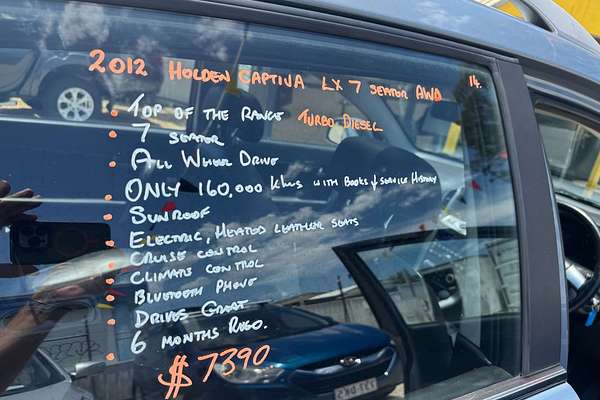 2012 HOLDEN CAPTIVA LX 7 SEATER AWD 14.
• TOP OF THE RANGE TURBO DIESEL
• 7 SEATER
• ALL WHEEL DRIVE
• ONLY 160,000 Kms WITH BOOKS & SERVICE HISTORY
• SUNROOF
• ELECTRIC, HEATED LEATHER SEATS
• CRUISE CONTROL
• CLIMATE CONTROL
• BLUETOOTH PHONE
• DRIVES GREAT
• 6 MONTHS REGO.
$7390